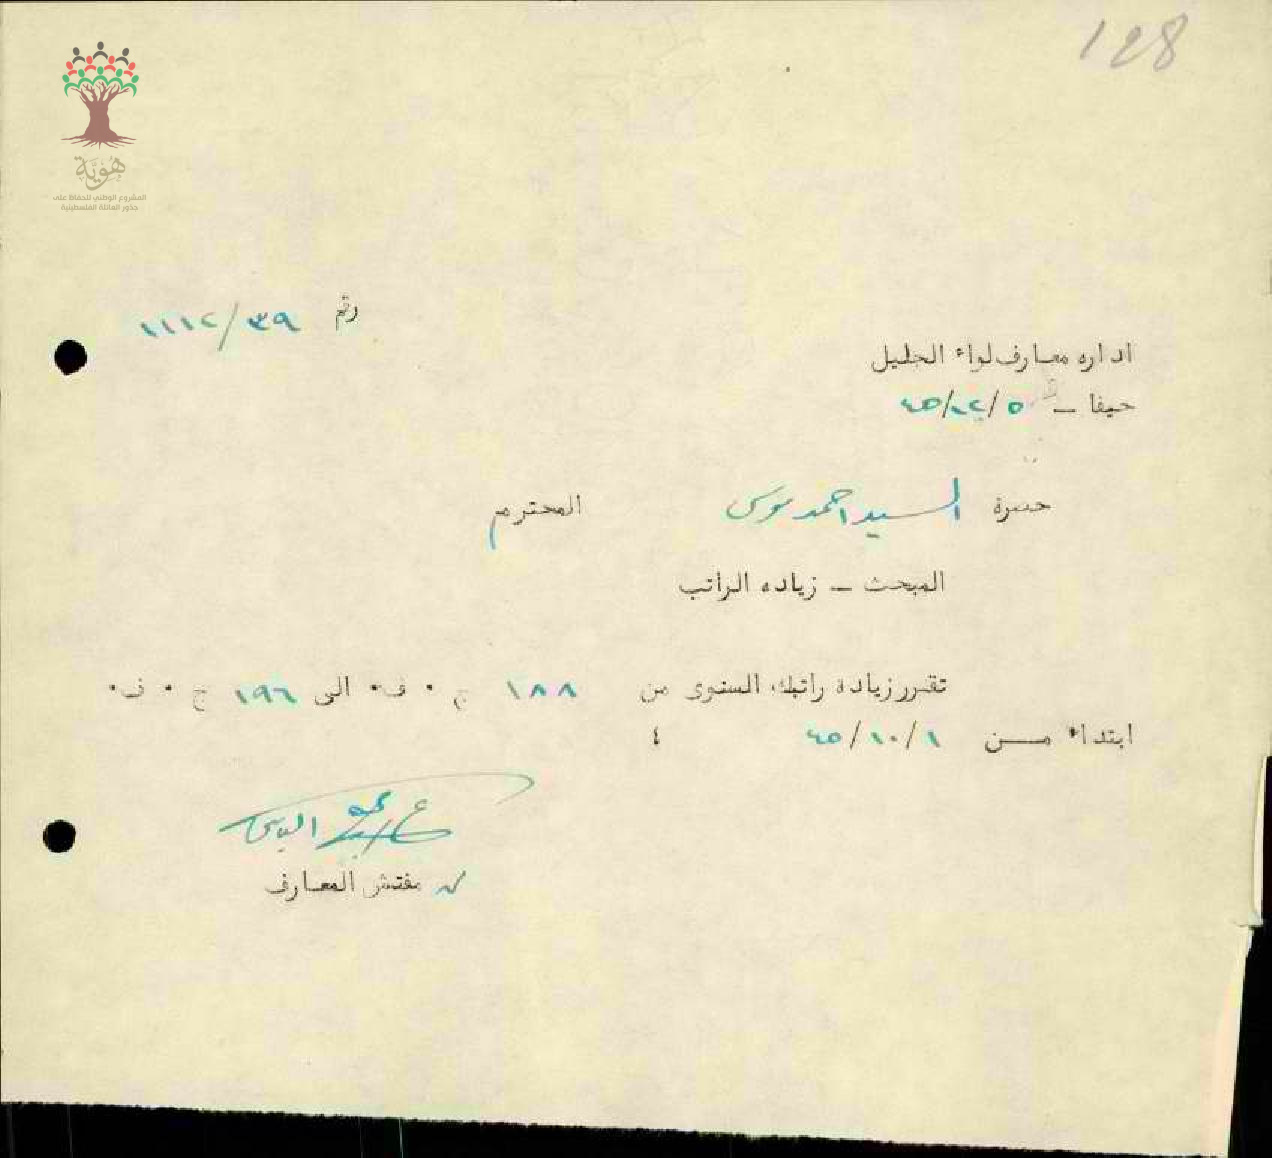 128
هُوِيَّة
المشروع الوطني للحفاظ على
جذور العائلة الفلسطينية
رقم ٣٩/١١١٢
اداره معارف لواء الجليل
حيفا – ٥/١٢/٤٥
حضرة السيد احمد موسى المحترم
المبحث – زياده الراتب
تقرر زيادة راتبك السنوى من ١٨٨ ج ٠ ف٠ الى ١٩٦ ج ٠ ف٠
ابتداء من ١/١٠/٤٥ ٤
مفتش المعارف